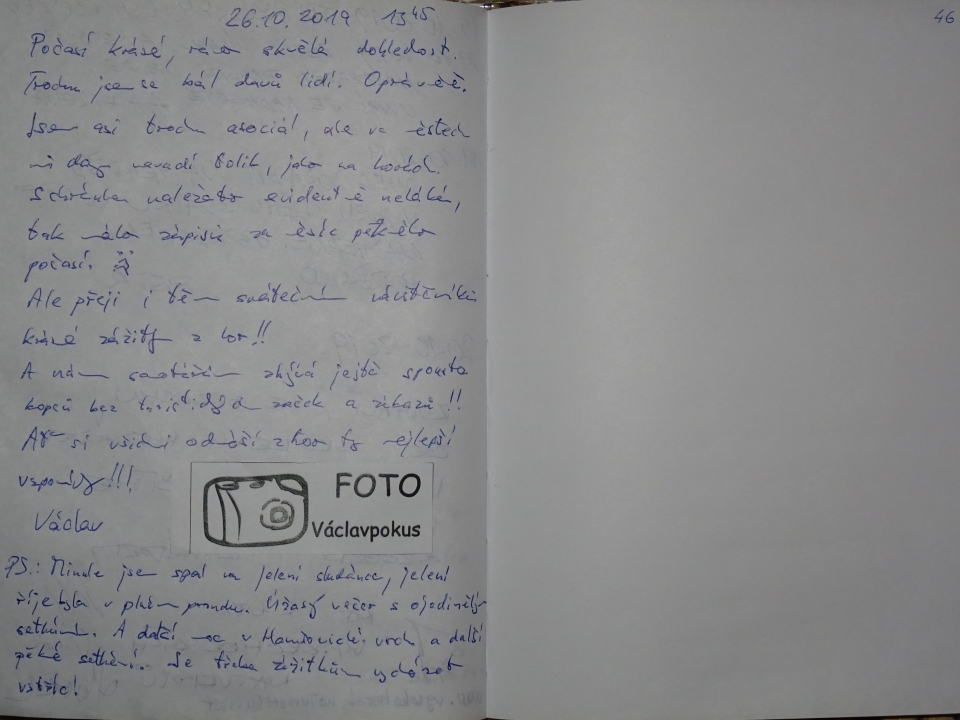 26.10.2019 13⁴⁵
46
Počasí krásné, ráno skvělá dohlednost.
Trochu jsem se bál davů lidí. Oprávněně.
Jsem asi trochu asociál, ale ve městech
mi davy nevadí tolik, jako na horách.
Schránka naležato evidentně neláká,
tak málo zápisů za měsíc pěkného
počasí.
Ale přeji i těm svátečním návštěvníkům
krásné zážitky z hor!!
A nám samotářům zbývá ještě spousta
kopců bez turistických značek a zákazů!!
Ať si všichni odnáší z hor ty nejlepší
vzpomínky!!!
Václav
FOTO
Václavpokus
PS.: Minule jsem spal na Jelení studánce, jelení
říje byla v plném proudu. Úžasný večer s ojedinělým
setkáním. A další noc v vrch a další
pěkné setkání. Se třeba zážitkům vycházet
vstříc!